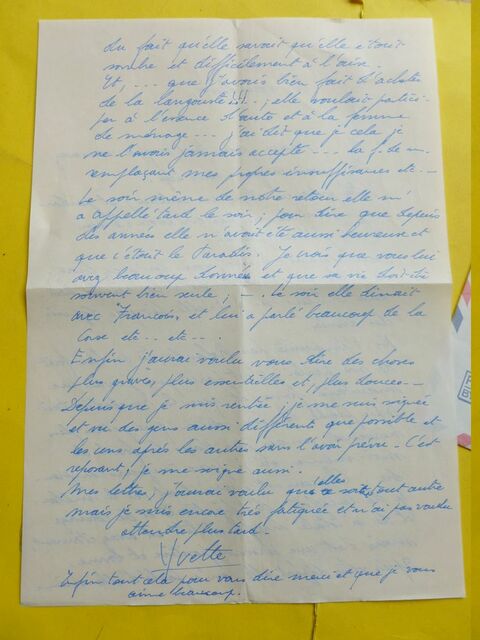 du fait qu'elle savait qu'elle était
sombre et difficilement à l'aise.
Et, --- que j'avais bien fait d'acheter
de la langouste!!!., elle voulait partici-
per à l'essence d'auto et à la femme
de ménage --- j'ai dit que je cela je
ne l'avais jamais accepté --- la f. de m.
remplaçant mes propres insuffisances etc --
Le soir même de notre retour elle m'
a appellé tard le soir, pour dire que depuis
des années elle n'avait été aussi heureuse et
que c'était le Paradis. Je crois que vous lui
avez beaucoup donné et que sa vie doit être
souvent bien seule, -. Le soir elle dînait
avec François, et lui a parlé beaucoup de la
Case etc -- etc --.
Enfin j'aurai voulu vous dire des choses
plus graves, plus essentielles et, plus douces --
Depuis que je suis rentrée, je me suis
et vu des gens aussi différents que possible et
les uns après les autres sans l'avoir prévu - C'est
reposant, je me soigne aussi.
Mes lettres, j'aurai voulu qu'elles soient tout autre
mais je suis encore très fatiguée et n'ai pas voulu
attendre plus tard.
Yvette
Enfin tout cela pour vous dire merci et que je vous
aime beaucoup.